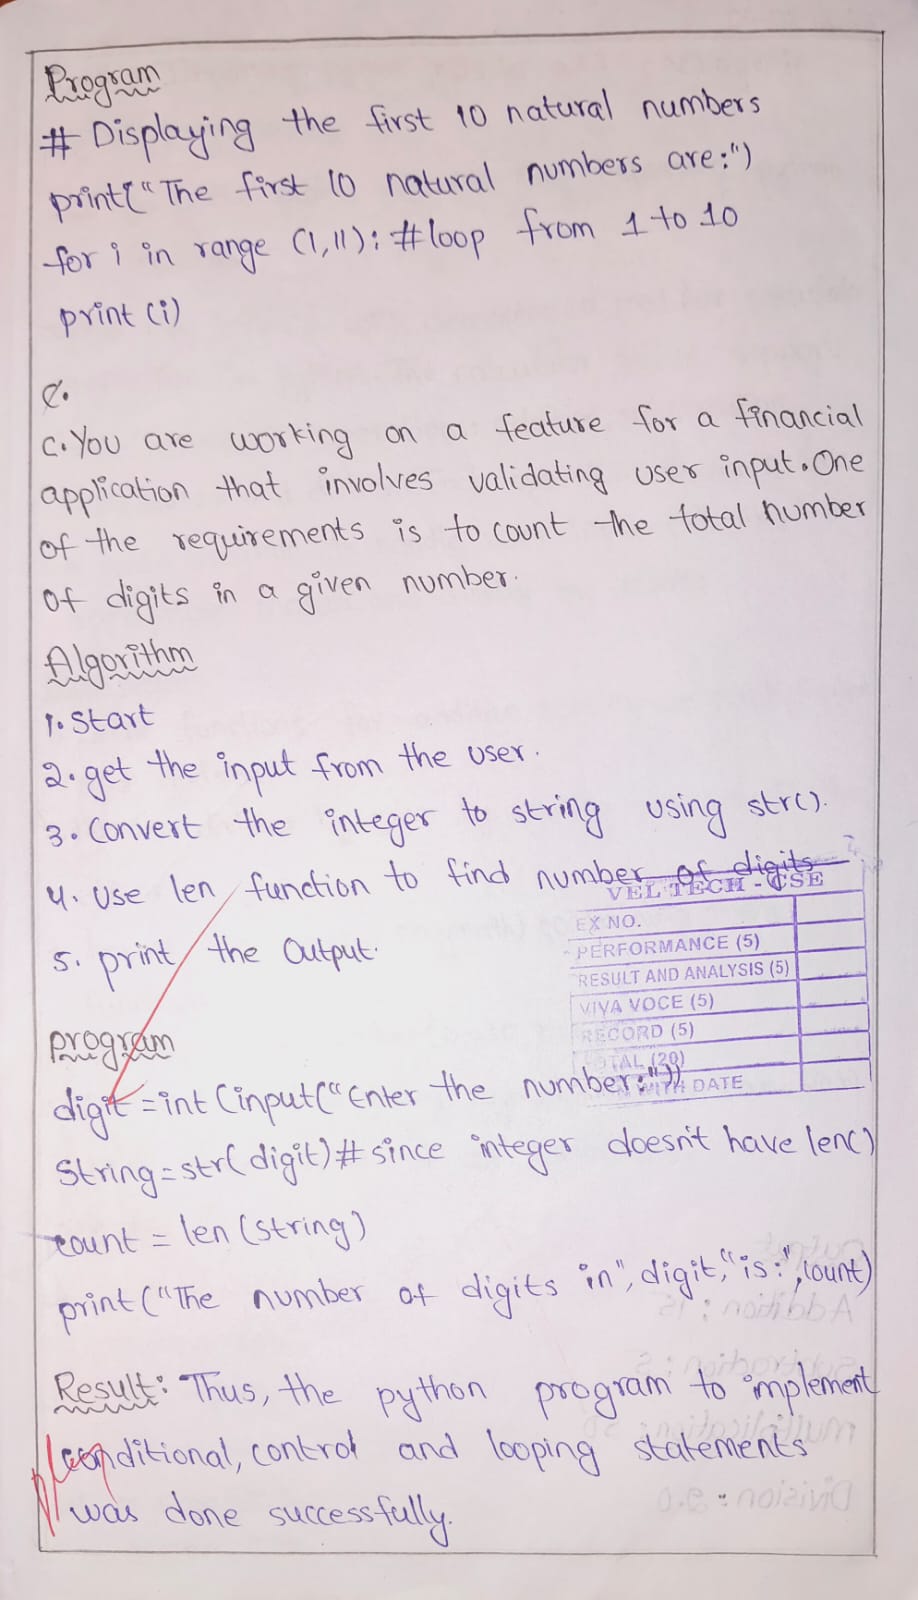 Program
# Displaying the first 10 natural numbers
print("The first 10 natural numbers are:")
for i in range (1,11): #loop from 1 to 10
print (i)
C.
C. You are working on a feature for a financial
application that involves validating user input. One
of the requirements is to count the total number
of digits in a given number.
Algorithm
1. Start
2. get the input from the user.
3. Convert the integer to string using str().
4. Use len function to find number of digits
VEL TECH - CSE
EX NO.
PERFORMANCE (5)
RESULT AND ANALYSIS (5)
VIVA VOCE (5)
RECORD (5)
TOTAL (20)
WITH DATE
5. print the Output.
program
digit = int (input("Enter the number:"))
String = str(digit) # since integer doesn't have len()
count = len (string)
print ("The number of digits in", digit, "is:", count)
Result: Thus, the python program to implement
conditional, control and looping statements
was done successfully.